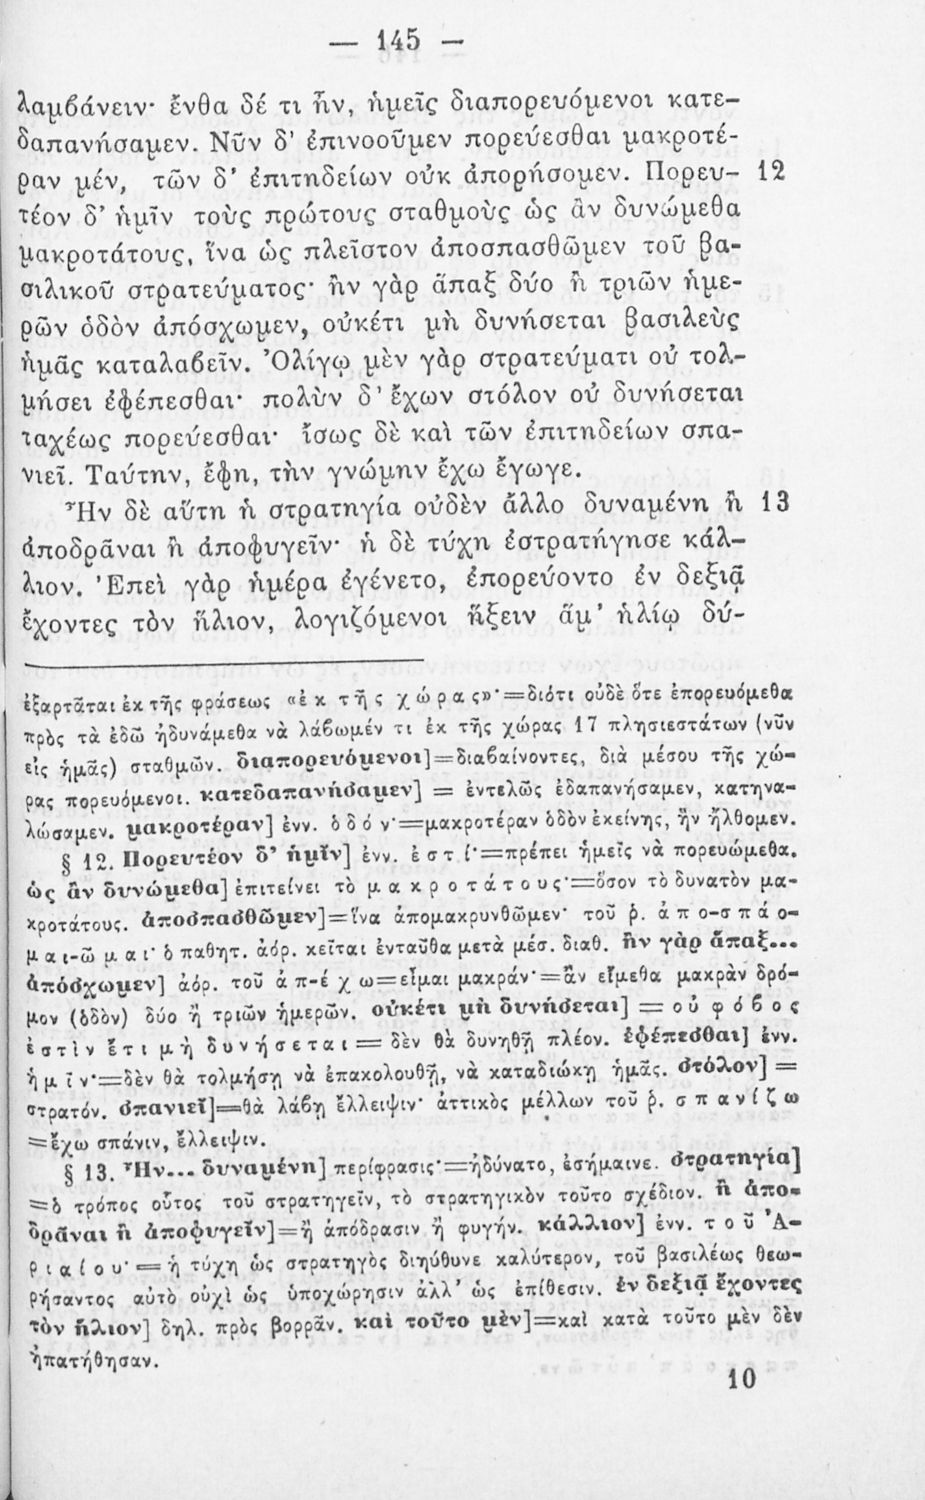 — 145 —
λαμβάνειν· ἔνθα δέ τι ἦν, ἡμεῖς διαπορευόμενοι κατε-
δαπανήσαμεν. Νῦν δ' ἐπινοοῦμεν πορεύεσθαι μακροτέ-
ραν μέν, τῶν δ' ἐπιτηδείων οὐκ ἀπορήσομεν. Πορευ- 12
τέον δ' ἡμῖν τοὺς πρώτους σταθμοὺς ὡς ἂν δυνώμεθα
μακροτάτους, ἵνα ὡς πλεῖστον ἀποσπασθῶμεν τοῦ βα-
σιλικοῦ στρατεύματος· ἢν γὰρ ἅπαξ δύο ἢ τριῶν ἡμε-
ρῶν ὁδὸν ἀπόσχωμεν, οὐκέτι μὴ δυνήσεται βασιλεὺς
ἡμᾶς καταλαβεῖν. Ὀλίγῳ μὲν γὰρ στρατεύματι οὐ τολ-
μήσει ἐφέπεσθαι· πολὺν δ' ἔχων στόλον οὐ δυνήσεται
ταχέως πορεύεσθαι· ἴσως δὲ καὶ τῶν ἐπιτηδείων σπα-
νιεῖ. Ταύτην, ἔφη, τὴν γνώμην ἔχω ἔγωγε.
Ἦν δὲ αὕτη ἡ στρατηγία οὐδὲν ἄλλο δυναμένη ἢ 13
ἀποδρᾶναι ἢ ἀποφυγεῖν· ἡ δὲ τύχη ἐστρατήγησε κάλ-
λιον. Ἐπεὶ γὰρ ἡμέρα ἐγένετο, ἐπορεύοντο ἐν δεξιᾷ
ἔχοντες τὸν ἥλιον, λογιζόμενοι ἥξειν ἅμ' ἡλίῳ δύ-
ἐξαρτᾶται ἐκ τῆς φράσεως «ἐκ τῆς χώρας»·=διότι οὐδὲ ὅτε ἐπορευόμεθα
πρὸς τὰ ἐδῶ ἠδυνάμεθα νὰ λάβωμέν τι ἐκ τῆς χώρας 17 πλησιεστάτων (νῦν
εἰς ἡμᾶς) σταθμῶν. διαπορευόμενοι]=διαβαίνοντες, διὰ μέσου τῆς χώ-
ρας πορευόμενοι. κατεδαπανήσαμεν] = ἐντελῶς ἐδαπανήσαμεν, κατηνα-
λώσαμεν. μακροτέραν] ἐνν. ὁδόν·=μακροτέραν ὁδὸν ἐκείνης, ἣν ἤλθομεν.
§ 12. Πορευτέον δ' ἡμῖν] ἐνν. ἐστί·=πρέπει ἡμεῖς νὰ πορευώμεθα.
ὡς ἂν δυνώμεθα] ἐπιτείνει τὸ μακροτάτους·=ὅσον τὸ δυνατὸν μα-
κροτάτους. ἀποσπασθῶμεν]=ἵνα ἀπομακρυνθῶμεν· τοῦ ῥ. ἀπο-σπάο-
μαι-ῶμαι· ὁ παθητ. ἀόρ. κεῖται ἐνταῦθα μετὰ μέσ. διαθ. ἢν γὰρ ἅπαξ...
ἀπόσχωμεν] ἀόρ. τοῦ ἀπ-έχω=εἶμαι μακράν·=ἂν εἴμεθα μακρὰν δρό-
μον (ὁδὸν) δύο ἢ τριῶν ἡμερῶν. οὐκέτι μὴ δυνήσεται] = οὐ φόβος
ἐστὶν ἔτι μὴ δυνήσεται= δὲν θὰ δυνηθῇ πλέον. ἐφέπεσθαι] ἐνν.
ἡμῖν·=δὲν θὰ τολμήσῃ νὰ ἐπακολουθῇ, νὰ καταδιώκῃ ἡμᾶς. στόλον] =
στρατόν. σπανιεῖ]=θὰ λάβῃ ἔλλειψιν· ἀττικὸς μέλλων τοῦ ῥ. σπανίζω
=ἔχω σπάνιν, ἔλλειψιν.
§ 13. Ἦν... δυναμένη] περίφρασις·=ἠδύνατο, ἐσήμαινε. στρατηγία]
=ὁ τρόπος οὗτος τοῦ στρατηγεῖν, τὸ στρατηγικὸν τοῦτο σχέδιον. ἢ ἀπο-
δρᾶναι ἢ ἀποφυγεῖν]=ἢ ἀπόδρασιν ἢ φυγήν. κάλλιον] ἐνν. τοῦ Ἀ-
ριαίου·= ἡ τύχη ὡς στρατηγὸς διηύθυνε καλύτερον, τοῦ βασιλέως θεω-
ρήσαντος αὐτὸ οὐχὶ ὡς ὑποχώρησιν ἀλλ' ὡς ἐπίθεσιν. ἐν δεξιᾷ ἔχοντες
τὸν ἥλιον] δηλ. πρὸς βορρᾶν. καὶ τοῦτο μὲν]=καὶ κατὰ τοῦτο μὲν δὲν
ἠπατήθησαν.
10